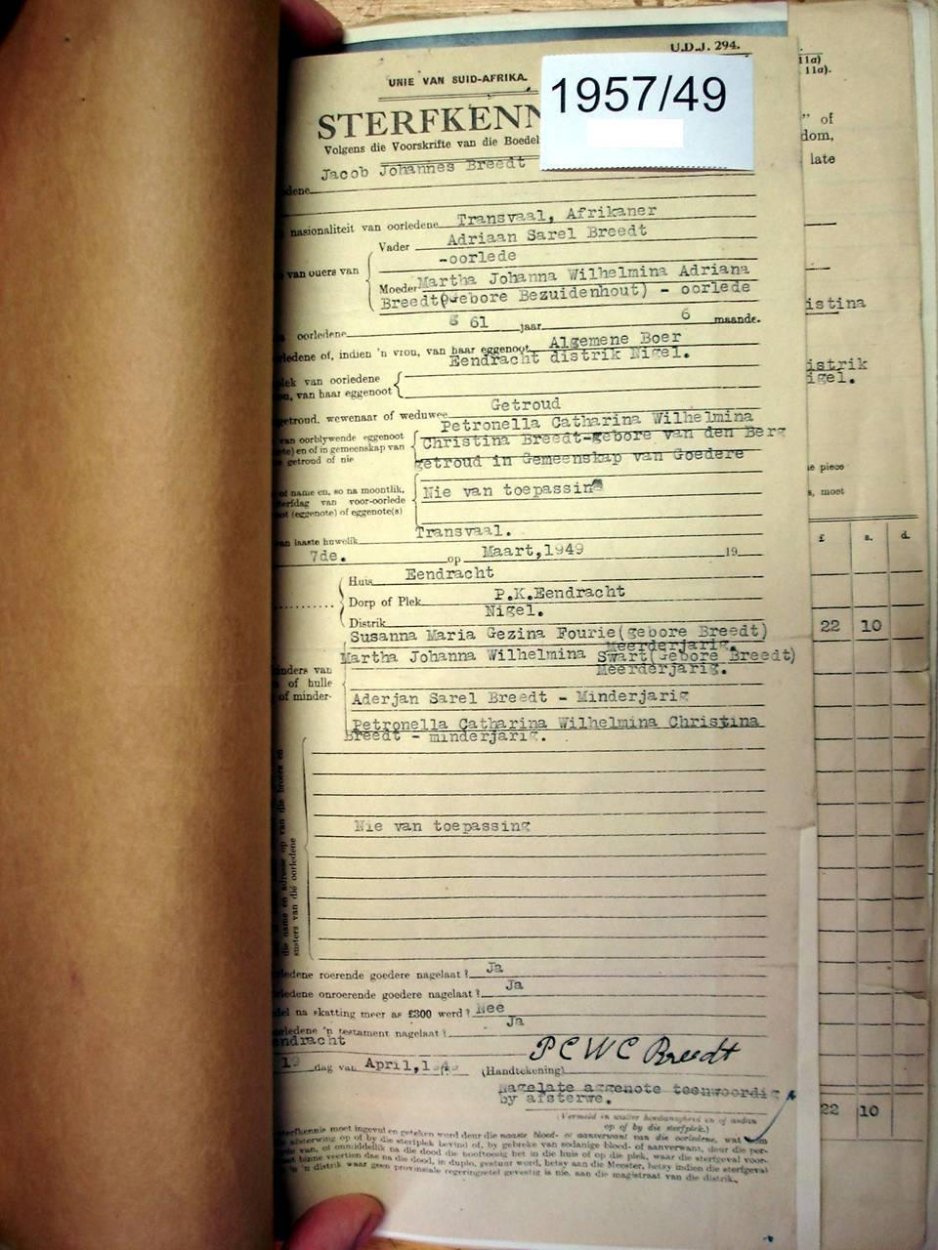 U.D.J. 294.
UNIE VAN SUID-AFRIKA.
1957/49
STERFKENN
Volgens die Voorskrifte van die Boedel
Jacob Johannes Breedt
edene
nasionaliteit van oorledene Transvaal, Afrikaner
Vader Adriaan Sarel Breedt
-oorlede
van ouers van
Moeder Martha Johanna Wilhelmina Adriana
Breedt(gebore Bezuidenhout) - oorlede
oorledene 61 jaar 6 maande.
ledene of, indien 'n vrou, van haar eggenoot Algemene Boer
Eendracht distrik Nigel.
lek van oorledene
ou, van haar eggenoot
Getroud
getroud, wewenaar of weduwee
Petronella Catharina Wilhelmina
van oorblywende eggenoot
Christina Breedt-gebore van den Berg
te) en of in gemeenskap van
getroud in Gemeenskap van Goedere
getroud of nie
of name en, so na moontlik,
Nie van toepassing
terfdag van voor-oorlede
oot (eggenote) of eggenote(s)
Transvaal.
van laaste huwelik
7de. op Maart,1949 19
Huis Eendracht
Dorp of Plek P.K.Eendracht
Distrik Nigel.
Susanna Maria Gezina Fourie(gebore Breedt)
meerderjarig.
Martha Johanna Wilhelmina Swart(gebore Breedt)
Meerderjarig.
inders van
of hulle
of minder-
Aderjan Sarel Breedt - Minderjarig
Petronella Catharina Wilhelmina Christina
Breedt - minderjarig.
die name en adresse op van die broers en
susters van die oorledene
Nie van toepassing
ledene roerende goedere nagelaat? Ja
ledene onroerende goedere nagelaat? Ja
del na skatting meer as £300 werd? Nee
ledene 'n testament nagelaat? Ja
endracht
P C W C Breedt
19 dag van April,
(Handtekening)
Nagelate eggenote teenwoordig
by afsterwe.
(Vermeld in watter hoedanigheid en of anders
op of by die sterfplek.)
sterfkennis moet ingevul en geteken word deur die naaste bloed- of aanverwant van die oorledene, wat
afsterwing op of by die sterfplek bevind of, by gebreke van sodanige bloed- of aanverwant, deur die per-
van, of onmiddellik na die dood die hooftoesig het in die huis of op die plek, waar die sterfgeval voor-
binne veertien dae na die dood, in duplo, gestuur word, hetsy aan die Meester, hetsy indien die sterfgeval
'n distrik waar geen provinsiale regeringsetel gevestig is nie, aan die magistraat van die distrik.
11a)
11a).
" of
dom,
late
istina
istrik
igel.
e piece
s, moet
£ s. d.
22 10
22 10